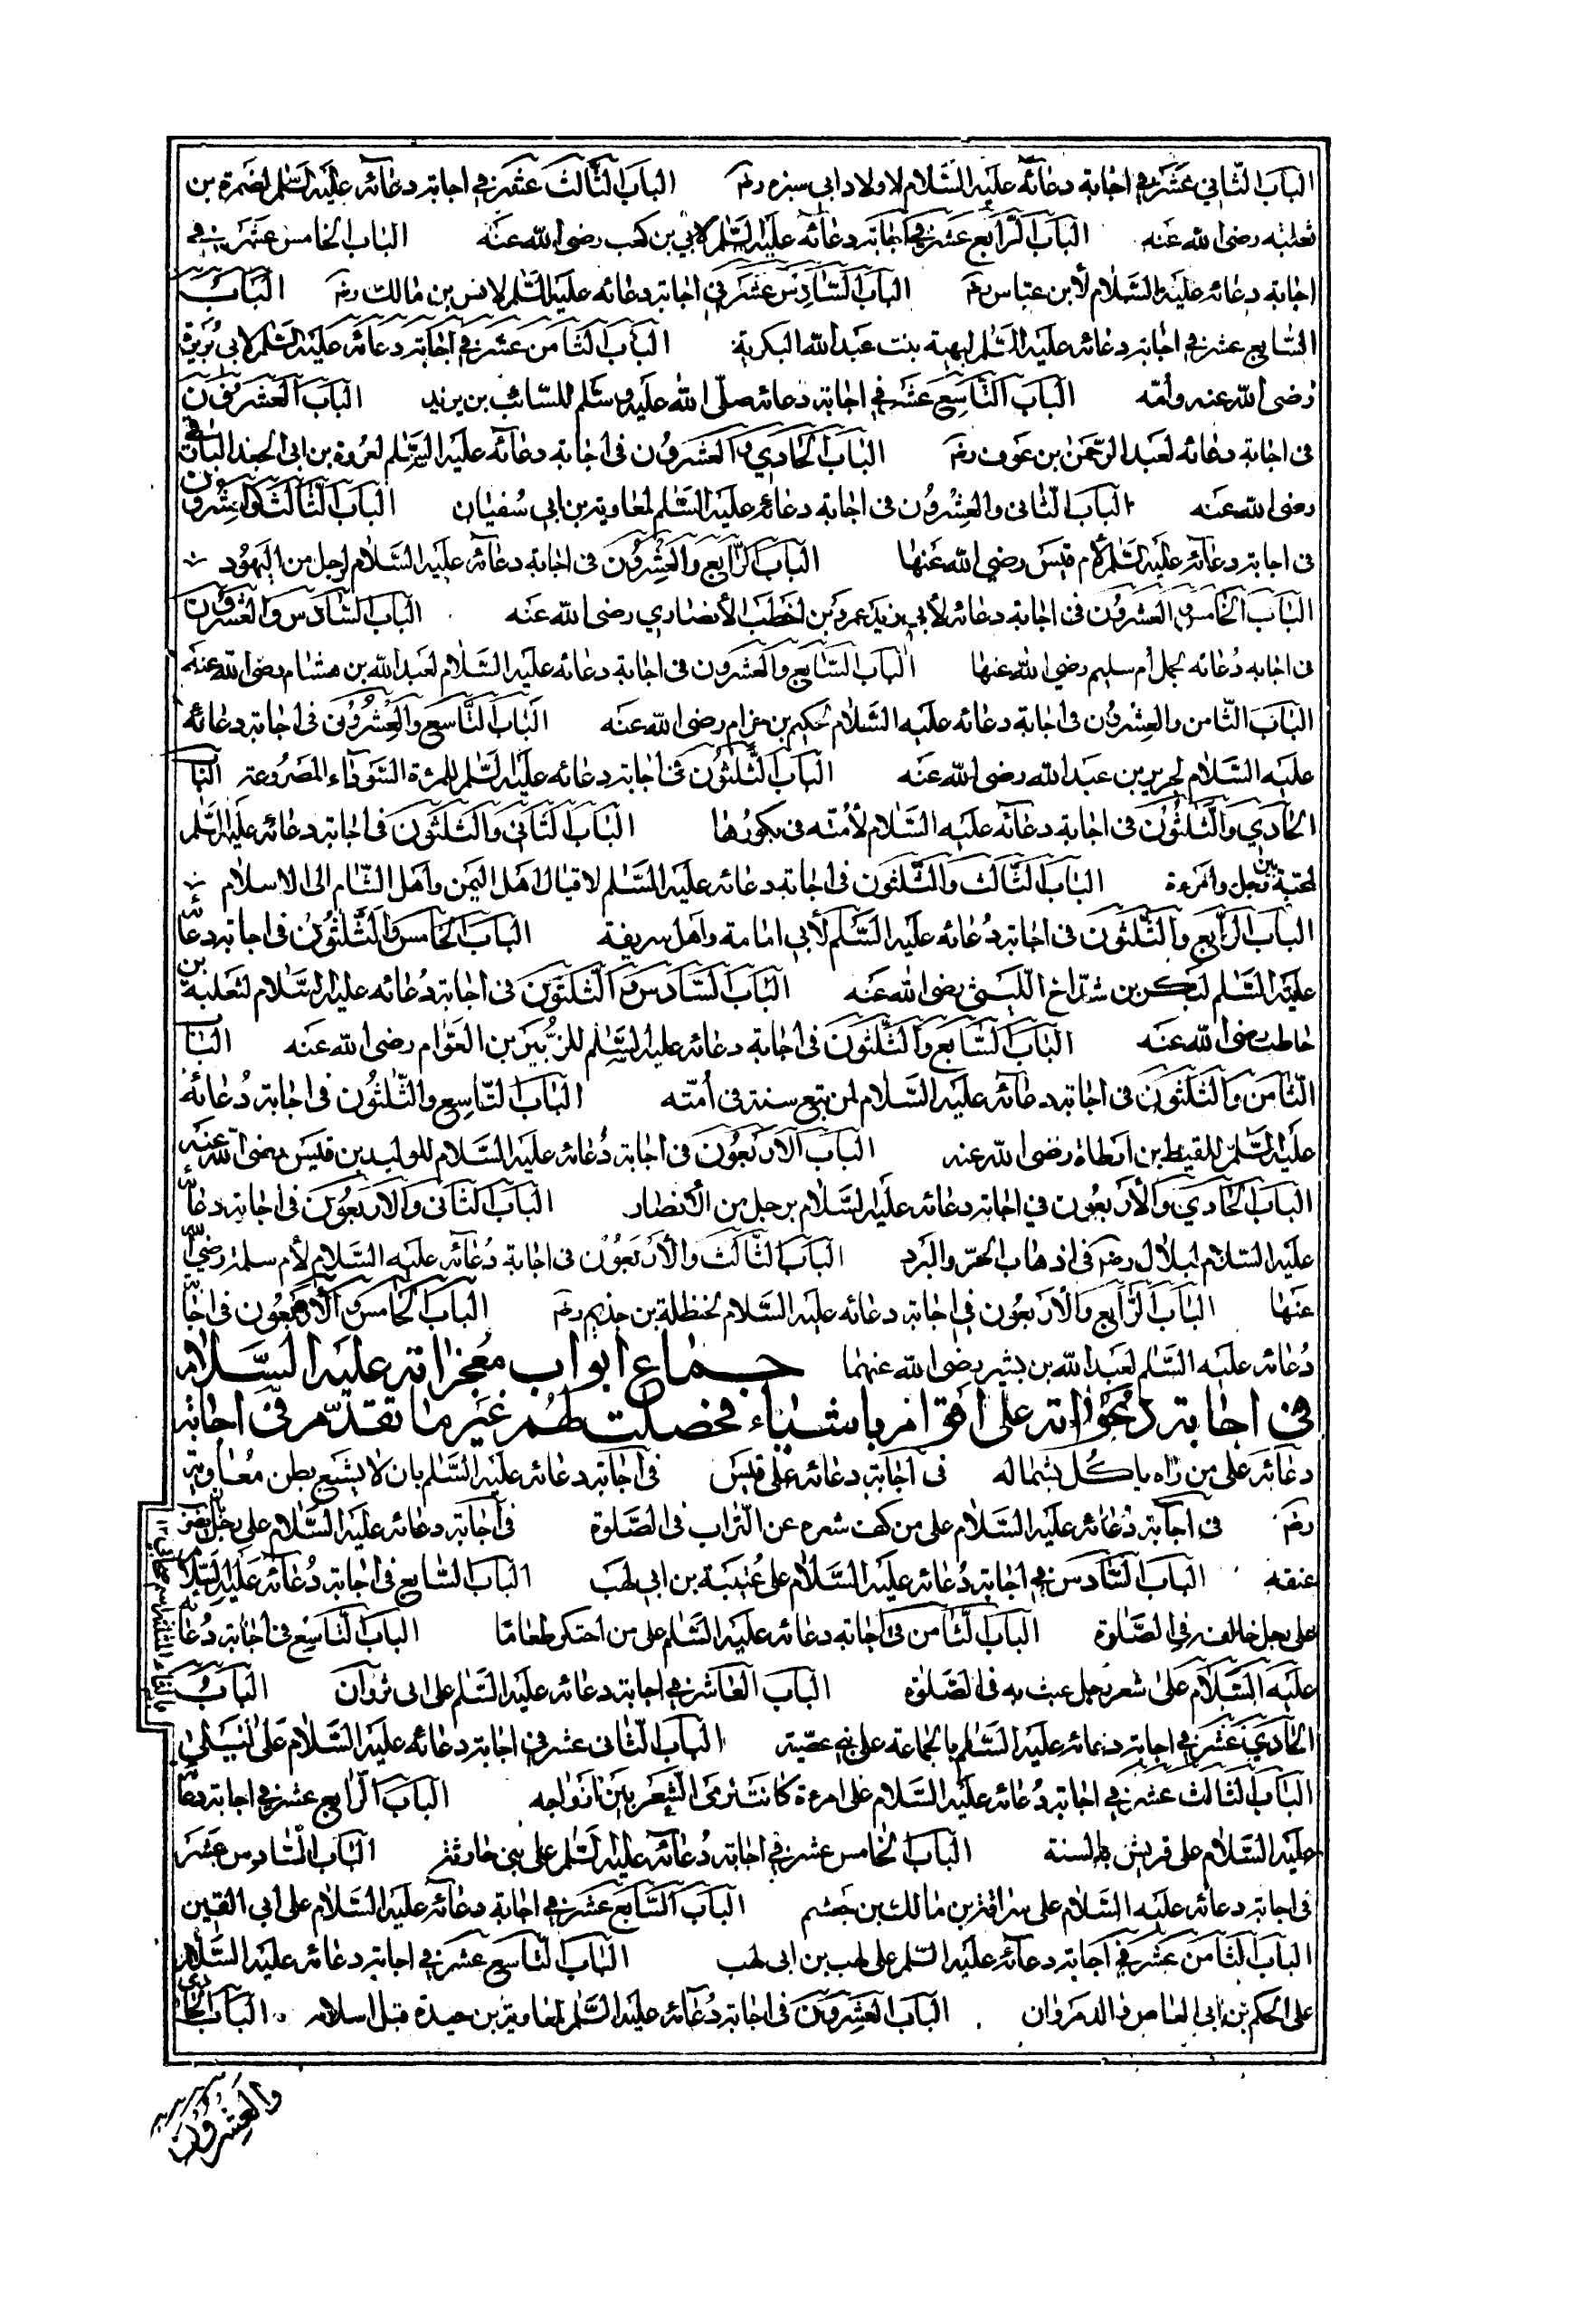 الباب الثاني عشر في اجابة دعائه عليه السلام لاولاد ابي سبزه رضه الباب الثالث عشر في اجابة دعائه عليه السلم لضمرة بن
ثعلبه رضى الله عنه الباب الرابع عشر في اجابة دعائه عليه السلم لابي بن كعب رضى الله عنه الباب الخامس عشر في
اجابة دعائه عليه السلام لأبن عباس رضه الباب السادس عشر في اجابة دعائه عليه السلم لانس بن مالك رضه الباب
السابع عشر في اجابة دعائه عليه السلم لبهية بنت عبد الله البكرية الباب الثامن عشر في اجابة دعائه عليه السلم لابي هريرة
رضى الله عنه وأمه الباب التاسع عشر في اجابة دعائه صلى الله عليه وسلم للسائب بن يزيد الباب العشرون
فى اجابة دعائه لعبد الرحمن بن عوف رضه الباب الحادي والعشرون فى اجابة دعائه عليه السلم لعروة بن ابى الجعد البارقي
رضى الله عنه الباب الثانى والعشرون فى اجابة دعائه عليه السلم لمعاوية بن ابي سفيان الباب الثالث والعشرون
فى اجابة دعائه عليه السلم لأم قيس رضي الله عنها الباب الرابع والعشرون فى اجابة دعائه عليه السلام لرجل من اليهود
الباب الخامس والعشرون فى اجابة دعائه لأبي زيد عمرو بن اخطب الأنصاري رضى الله عنه الباب السادس والعشرون
فى اجابه دعائه لحمل أم سليم رضي الله عنها الباب السابع والعشرون فى اجابة دعائه عليه السلام لعبد الله بن هشام رضى الله عنه
الباب الثامن والعشرون فى اجابة دعائه عليه السلام لحكيم بن حزام رضى الله عنه الباب التاسع والعشرون فى اجابة دعائه
عليه السلام لجرير بن عبد الله رضى الله عنه الباب الثلثون فى اجابة دعائه عليه السلم للمرءة السوداء المصروعة البا
الحادي والثلثون فى اجابة دعائه عليه السلام لأمته فى بكورها الباب الثانى والثلثون فى اجابة دعائه عليه السلم
لمحبة بين رجل وامرءة الباب الثالث والثلثون فى اجابة دعائه عليه السلم لاقبال اهل اليمن واهل الشام الى الاسلام
الباب الرابع والثلثون فى اجابة دعائه عليه السلم لأبي امامة واهل سريفة الباب الخامس والثلثون فى اجابة دعائه
عليه السلم لبكر بن شداخ الليثى رضى الله عنه الباب السادس والثلثون فى اجابة دعائه عليه السلام لثعلبة بن
حاطب رضى الله عنه الباب السابع والثلثون فى اجابة دعائه عليه السلم للزبير بن العوام رضى الله عنه البا
الثامن والثلثون فى اجابة دعائه عليه السلام لمن تتبع سنة فى أمته الباب التاسع والثلثون فى اجابة دعائه
عليه السلم للقيط بن ارطاة رضى الله عنه الباب الاربعون فى اجابة دعائه عليه السلام للوليد بن قيس رضى الله عنه
الباب الحادي والأربعون في اجابة دعائه عليه السلام برجل من الأنصار الباب الثانى والاربعون فى اجابة دعائه
عليه السلام لبلال رضه فى اذهاب الحر والبرد الباب الثالث والأربعون فى اجابة دعائه عليه السلام لأم سلمة رضي الله
عنها الباب الرابع والأربعون في اجابة دعائه عليه السلام لحنظلة بن حذيم رضه الباب الخامس والأربعون فى اجابة
دعائه عليه السلم لعبد الله بن بشير رضى الله عنهما جماع ابواب معجزاته عليه السلام
فى اجابة دعواته على اقوام باشياء فحصلت لهم غير ما تقدم فى اجابة
دعائه على من راه ياكل بشماله فى اجابة دعائه على قيس فى اجابة دعائه عليه السلم بان لا يشبع بطن معاوية
رضه فى اجابة دعائه عليه السلام على من كف شعره عن التراب فى الصلوة فى اجابة دعائه عليه السلام على رجل بضرب
عنقه الباب السادس في اجابة دعائه عليه السلام على عتيبة بن ابى لهب الباب السابع فى اجابة دعائه عليه السلام
على رجل خالفه فى الصلوة الباب الثامن فى اجابة دعائه عليه السلم على من احتكر طعاما الباب التاسع فى اجابة دعائه
عليه السلام على شعر رجل عبث به فى الصلوة الباب العاشر في اجابة دعائه عليه السلم على ابى ثروان الباب
الحادي عشر في اجابة دعائه عليه السلم بالجماعة على بني عصية الباب الثانى عشر في اجابة دعائه عليه السلام على ليلى
الباب الثالث عشر في اجابة دعائه عليه السلام على امرءة كانت ترمى الشعر بين ازواجه الباب الرابع عشر في اجابة دعائه
عليه السلام على قريش بالسنة الباب الخامس عشر في اجابة دعائه عليه السلم على بنى حارثة الباب السادس عشر
فى اجابة دعائه عليه السلام على سراقة بن مالك بن جعشم الباب السابع عشر في اجابة دعائه عليه السلام على أبي القين
الباب الثامن عشر في اجابة دعائه عليه السلم على لهب بن ابى لهب الباب التاسع عشر في اجابة دعائه عليه السلام
على الحكم بن ابى العاص والد مروان الباب العشرون فى اجابة دعائه عليه السلم لمعاوية بن حيدة قبل اسلامه الباب الحادى
والعشرون